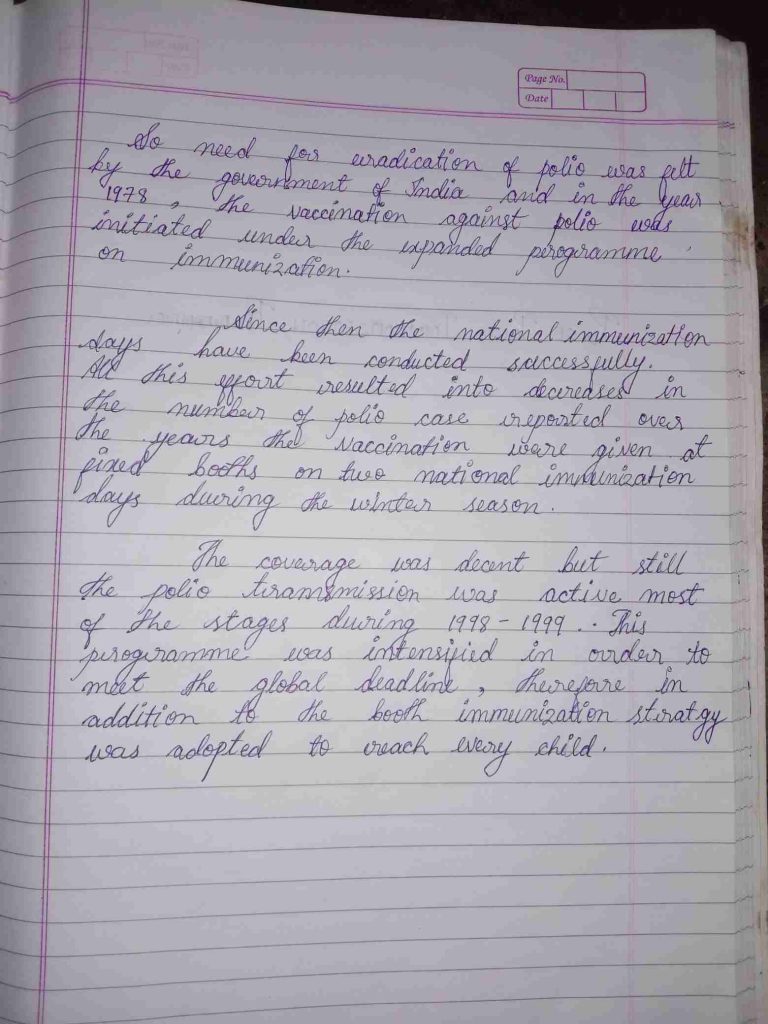 Page No.
Date
So need for eradication of polio was felt
by the government of India and in the year
1978, the vaccination against polio was
initiated under the expanded programme
on immunization.
Since then the national immunization
days have been conducted successfully.
All this effort resulted into decreases in
the number of polio case reported over
the years the vaccination were given at
fixed booths on two national immunization
days during the winter season.
The coverage was decent but still
the polio transmission was active most
of the stages during 1998 - 1999.. This
programme was intensified in order to
meet the global deadline, therefore in
addition to the booth immunization stratgy
was adopted to reach every child.